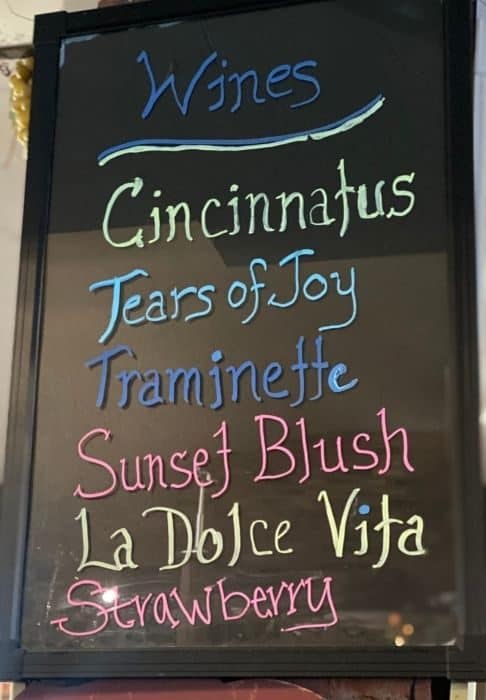 Wines
Cincinnatus
Tears of Joy
Traminette
Sunset Blush
La Dolce Vita
Strawberry